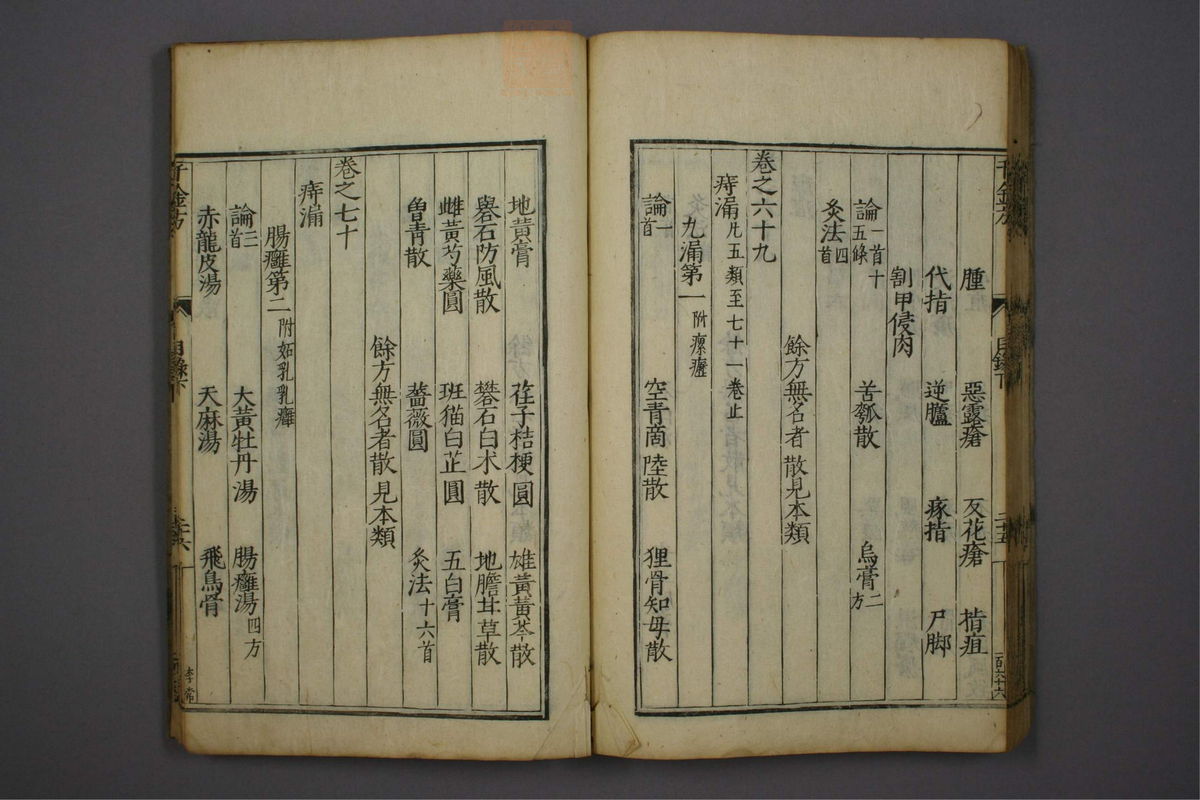 腫 惡露瘡 反花瘡 㨋疽
代指 逆臚 瘃指 尸脚
割甲侵肉
論一首十五條 苦瓠散 烏膏二方
灸法四首
餘方無名者散見本類
卷之六十九
痔漏凡五類至七十一卷止
九漏第一附瘰癧
論一首 空青商陸散 狸骨知母散
地黃膏 荏子桔梗圓 雄黃黃芩散
礜石防風散 礬石白术散 地膽甘草散
雌黃芍藥圓 班猫白芷圓 五白膏
曾青散 薔薇圓 灸法十六首
餘方無名者散見本類
卷之七十
痔漏
腸癰第二附妬乳乳癰
論三首 大黃牡丹湯 腸癰湯四方
赤龍皮湯 天麻湯 飛鳥骨
千金方 目錄下
李常
千金方 目錄下 二十五 一百六十六